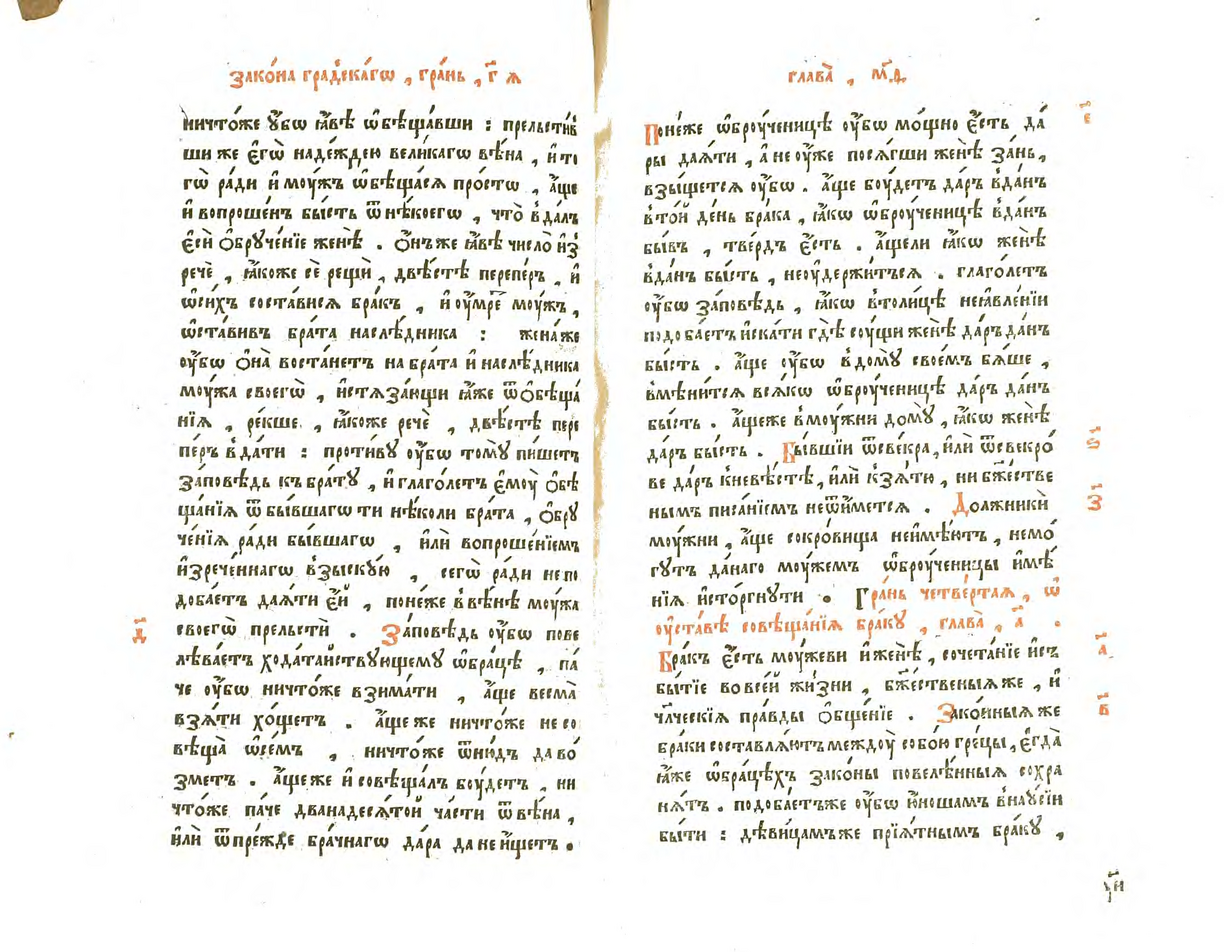 Зако́на гра́дскагѡ , гра́нь , г҃ ѧ
ничто́же ᲂу҆́бѡ ꙗ҆́вѣ ѡ҆бѣща́вши : прельсти́в
ши же є҆го̀ наде́ждею вели́кагѡ вѣ́на , и҆ то
гѡ̀ ра́ди и҆ моу́жъ ѡ҆бѣща́сѧ про́стѡ , а҆́ще
и҆ вопроше́нъ бы́сть ѿ нѣ́коегѡ , что̀ вда́лъ
є҆сѝ ѻ҆бруче́нїе женѣ̀ . ѻ҆́нъ же ꙗ҆́вѣ число̀ и҆з
речѐ , ꙗ҆́коже сѐ рещѝ , двѣ́стѣ перпе́ръ , и҆
ѡ҆ си́хъ соста́висѧ бра́къ , и҆ ᲂу҆́мре моу́жъ ,
ѡ҆ста́вивъ бра́та наслѣ́дника : жена́ же
ᲂу҆́бѡ ѻ҆на̀ воста́нетъ на бра́та и҆ наслѣ́дника
моу́жа своегѡ̀ , и҆стѧза́ющи ꙗ҆́же ѿ ѻ҆бѣща́
нїѧ , ре́кше , ꙗ҆́коже речѐ , двѣ́стѣ пере
пе́ръ вда́ти : проти́ву ᲂу҆́бѡ томꙋ̀ пи́шетъ
за́повѣдь къ бра́тꙋ , и҆ глаго́летъ є҆моу̀ ѻ҆бѣ
ща́нїѧ ѿ бы́вшагѡ ти нѣ́коли бра́та , ѻ҆бру
че́нїѧ ра́ди бы́вшагѡ , и҆лѝ вопроше́нїемъ
и҆зрече́ннагѡ взыску́ю , сегѡ̀ ра́ди не по
доба́етъ даѧ́ти є҆́й , поне́же в вѣ́нѣ моу́жа
своегѡ̀ прельстѝ . За́повѣдь ᲂу҆́бѡ пове
д҃
лѣва́етъ хода́тайствующему ѡ҆ бра́цѣ , па́
че ᲂу҆́бѡ ничто́же взима́ти , а҆́ще весма̀
взѧ́ти хо́щетъ . а҆́ще же ничто́же не со
вѣща̀ ѡ҆ се́мъ , ничто́же ѿню́дъ да во́
зметъ . а҆́ще же и҆ совѣща́лъ боу́детъ , ни
что́же па́че дванадесѧ́той ча́сти ѿ вѣ́на ,
и҆лѝ ѿ пре́жде бра́чнагѡ да́ра да не и҆́щетъ .
глава̀ , м҃д
Поне́же ѡ҆броу́ченицѣ ᲂу҆́бѡ мо́щно є҆́сть да́
є҃
ры даѧ́ти , а҆ не ᲂу҆́же посѧ́гши женѣ̀ за́нь ,
взы́щетсѧ ᲂу҆́бѡ . а҆́ще боу́детъ да́ръ вда́нъ
в то́й де́нь бра́ка , ꙗ҆́кѡ ѡ҆броу́ченицѣ вда́нъ
бы́въ , тве́рдъ є҆́сть . а҆́щели ꙗ҆́кѡ женѣ̀
вда́нъ бы́сть , не ᲂу҆держи́тьсѧ . глаго́летъ
ᲂу҆́бѡ за́повѣдь , ꙗ҆́кѡ в толи́цѣ неꙗвле́нїи
подоба́етъ и҆ска́ти гдѣ̀ соу́щи женѣ̀ да́ръ да́нъ
бы́сть . а҆́ще ᲂу҆́бѡ в домꙋ̀ свое́мъ бѧ́ше ,
вмѣни́тсѧ всѧ́кѡ ѡ҆броу́ченицѣ да́ръ да́нъ
бы́сть . а҆́щеже в моу́жни домꙋ̀ , ꙗ҆́кѡ женѣ̀
да́ръ бы́сть . Бы́вшїи ѿ све́кра , и҆лѝ ѿ свекро́
ѕ҃
ве да́ръ к невѣ́стѣ , и҆лѝ к зѧ́тю , ни бж҃е́стве
нымъ писа́нїемъ не ѿи́метсѧ . Должникѝ
з҃
моу́жни , а҆́ще сокро́вища не и҆мѣ́ютъ , не мо́
гутъ да́наго моу́жемъ ѡ҆броу́ченицы и҆мѣ́
нїѧ и҆сто́ргнути . Гра́нь четве́ртаѧ , ѡ҆
ᲂу҆ста́вѣ совѣща́нїѧ бра́кꙋ , глава̀ , а҃ .
Бра́къ є҆́сть моу́жеви и҆ женѣ̀ , сочета́нїе и҆ съ
а҃
бы́тїе во все́й жи́зни , бж҃е́ственыѧ же , и҆
чл҃ческїѧ пра́вды ѻ҆бще́нїе . Зако́нныѧ же
в҃
бра́ки составлѧ́ютъ междоу̀ собо́ю гре́цы , є҆гда̀
ꙗ҆́же ѡ҆ бра́цѣхъ зако́ны повелѣ́нныѧ сохра
нѧ́тъ . подоба́етъ же ᲂу҆́бѡ ю҆́ношамъ внау́сїи
бы́ти : дѣви́цамъ же прїѧ́тнымъ бра́кꙋ ,
ѱ҃и